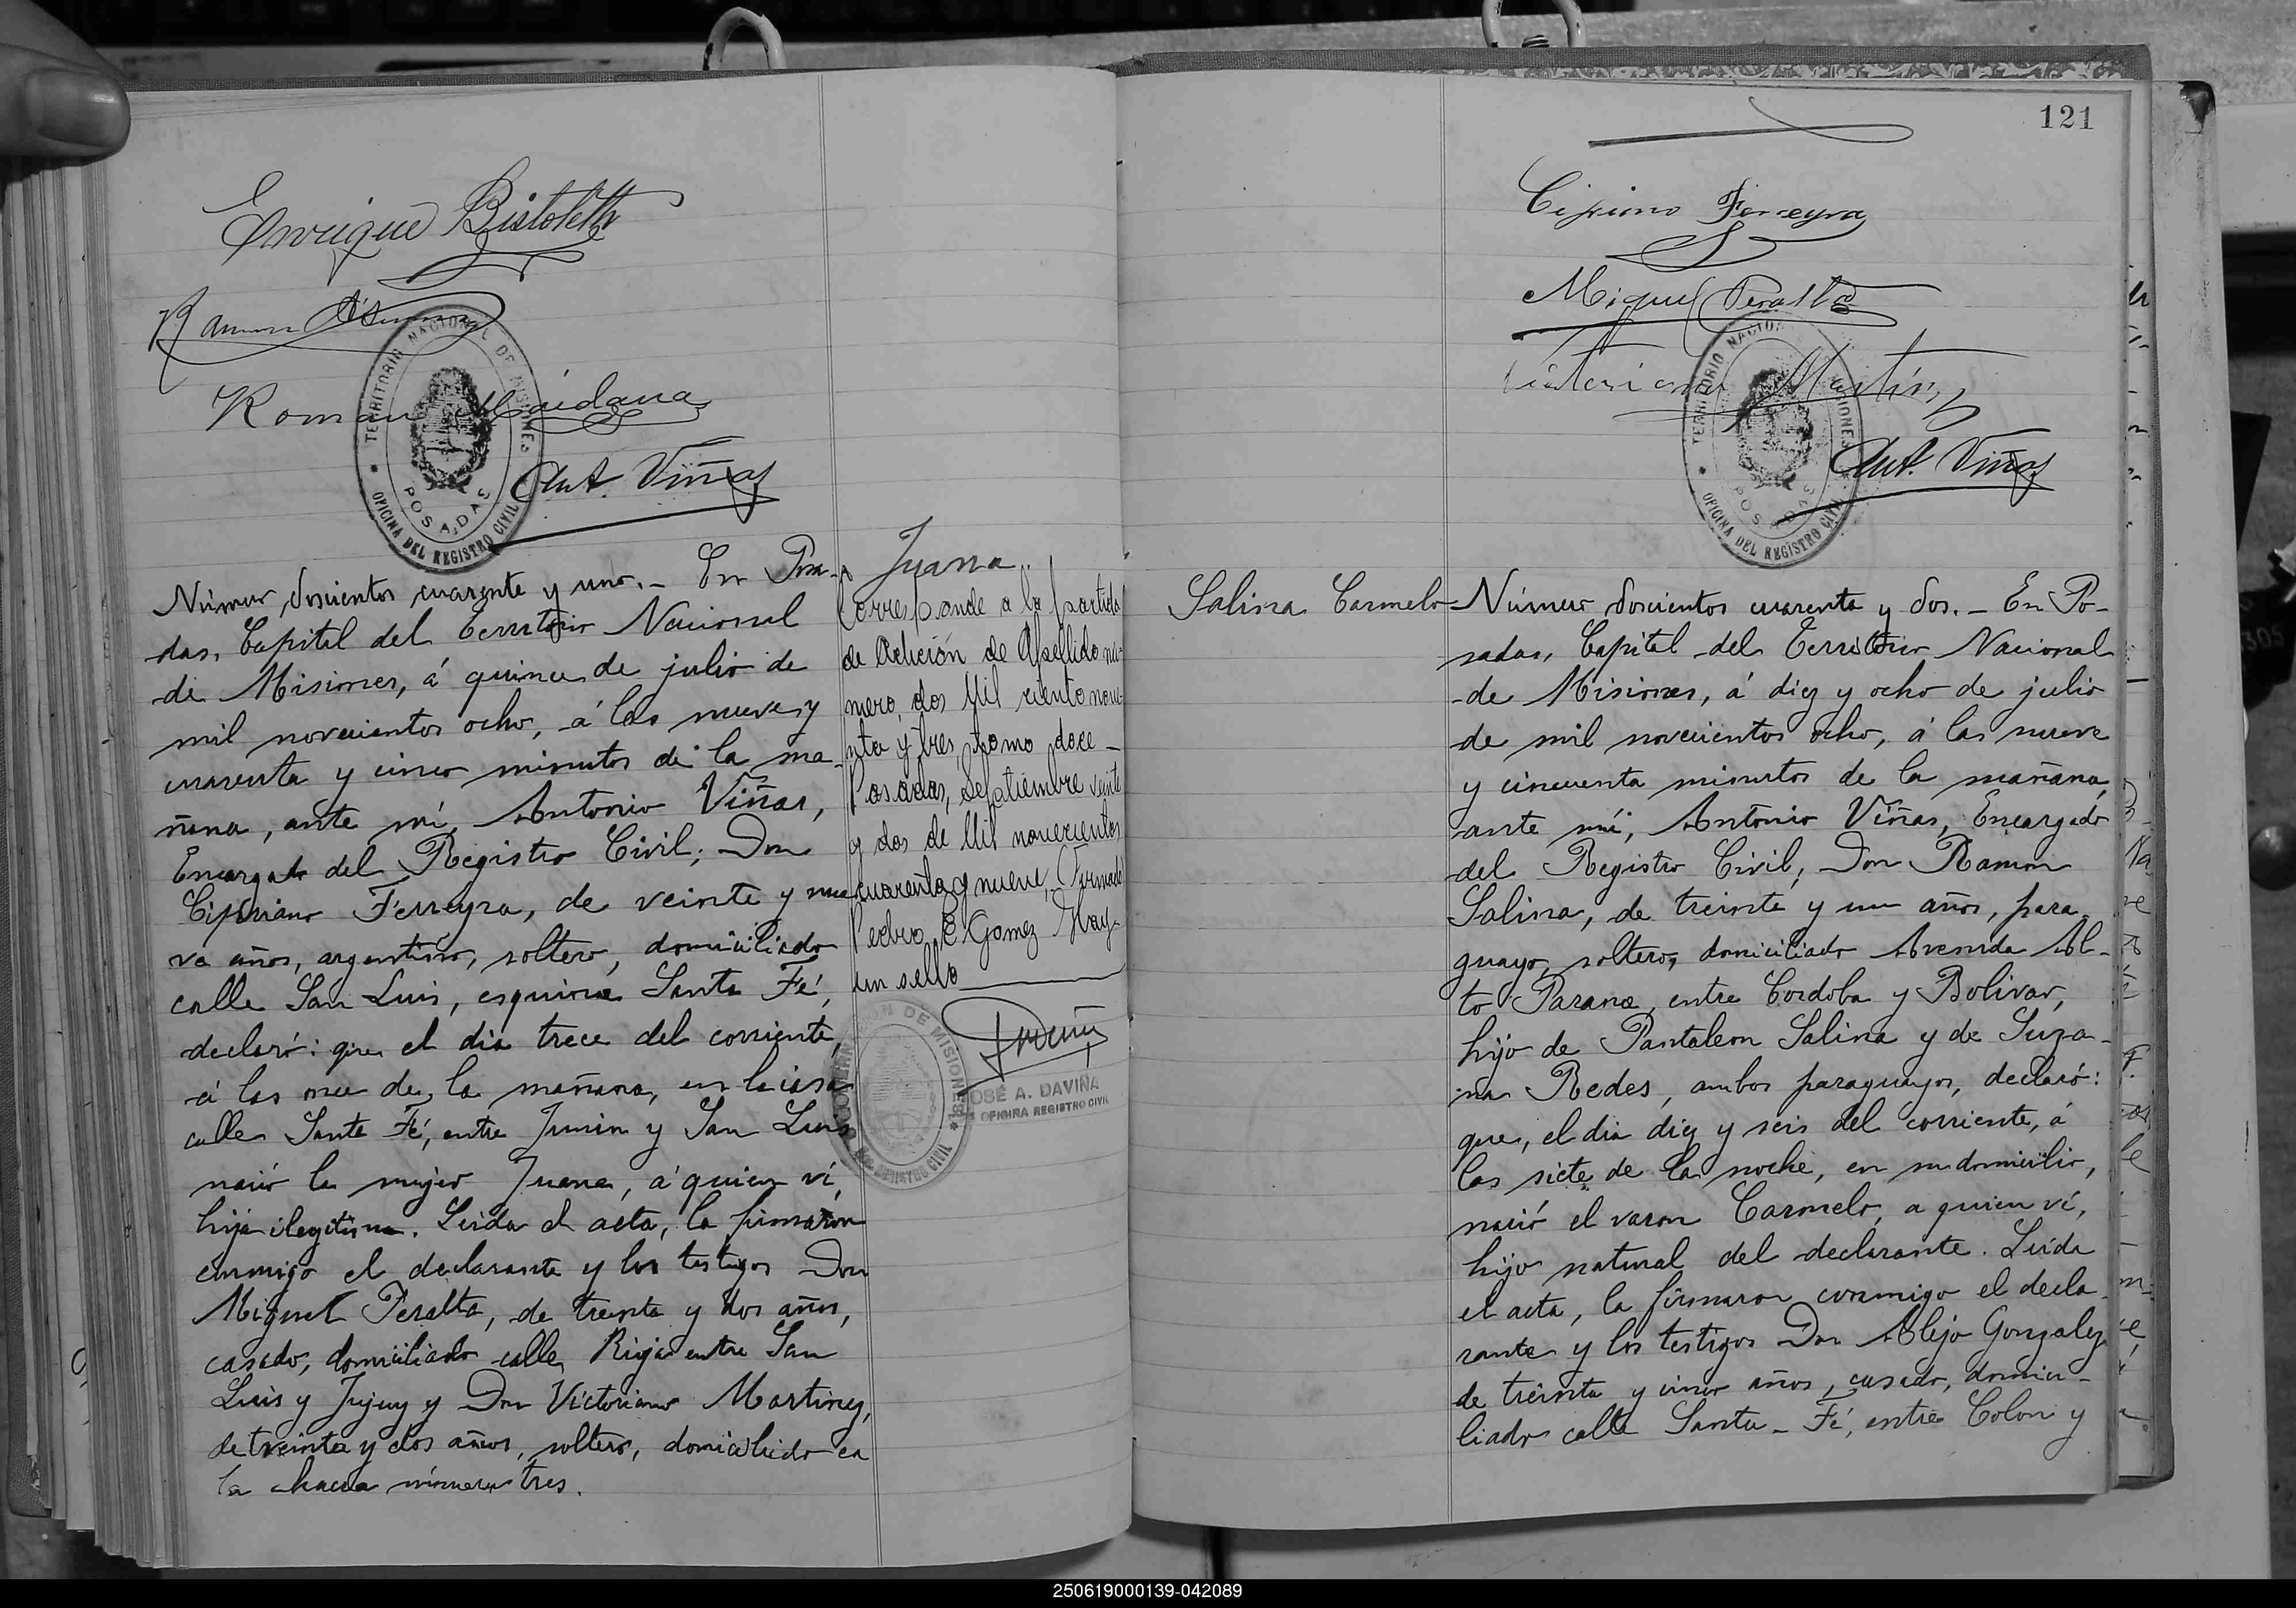 Enrique Bistoletti
Ramon
Roman Maidana
TERRITORIO NACIONAL DE MISIONES
POSADAS
OFICINA DEL REGISTRO CIVIL
Ant. Viñas
Número doscientos cuarenta y uno.- En Posa-
das, Capital del Territorio Nacional
de Misiones, á quince de julio de
mil novecientos ocho, á las nueve y
cuarenta y cinco minutos de la ma-
ñana, ante mí, Antonio Viñas,
Encargado del Registro Civil; Don
Cipriano Ferreyra, de veinte y nue
ve años, argentino, soltero, domiciliado
calle San Luis, esquina Santa Fé,
declaró: que el dia trece del corriente,
á las once de la mañana, en la casa
calle Santa Fé, entre Junin y San Luis
nació la mujer Juana, á quien ví,
hija ilegitima. Leida el acta, la firmaron
conmigo el declarante y los testigos Don
Miguel Peralta, de treinta y dos años,
casado, domiciliado calle Rioja entre San
Luis y Jujuy y Don Victoriano Martinez,
de treinta y dos años, soltero, domiciliado en
la chacra número tres.
Juana
Corresponde a la partida
de Adición de Apellido nú-
mero, dos Mil ciento nove-
nta y tres, tomo doce -
Posadas, Setiembre veinte
y dos de Mil novecientos
cuarenta y nueve, (Firmado)
Pedro E Gomez Hay
un sello
DE MISIONES
REGISTRO CIVIL
JOSÉ A. DAVIÑA
OFICINA REGISTRO CIVIL
121
Cipriano Ferreyra
Miguel Peralta
Victoriano Martinez
TERRITORIO NACIONAL DE MISIONES
POSADAS
OFICINA DEL REGISTRO CIVIL
Ant. Viñas
Salina Carmelo
Número doscientos cuarenta y dos.- En Po-
sadas, Capital del Territorio Nacional
de Misiones, á diez y ocho de julio
de mil novecientos ocho, á las nueve
y cincuenta minutos de la mañana,
ante mí, Antonio Viñas, Encargado
del Registro Civil; Don Ramon
Salina, de treinta y un años, para-
guayo, soltero, domiciliado Avenida Al-
to Paraná, entre Cordoba y Bolivar,
hijo de Pantaleon Salina y de Suza-
na Redes, ambos paraguayos, declaró:
que, el dia diez y seis del corriente, á
las siete de la noche, en su domicilio,
nació el varon Carmelo, a quien ví,
hijo natural del declarante. Leida
el acta, la firmaron conmigo el decla-
rante y los testigos Don Alejo Gonzalez
de treinta y cinco años, casado, domici-
liado calle Santa-Fé, entre Colon y
250619000139-042089